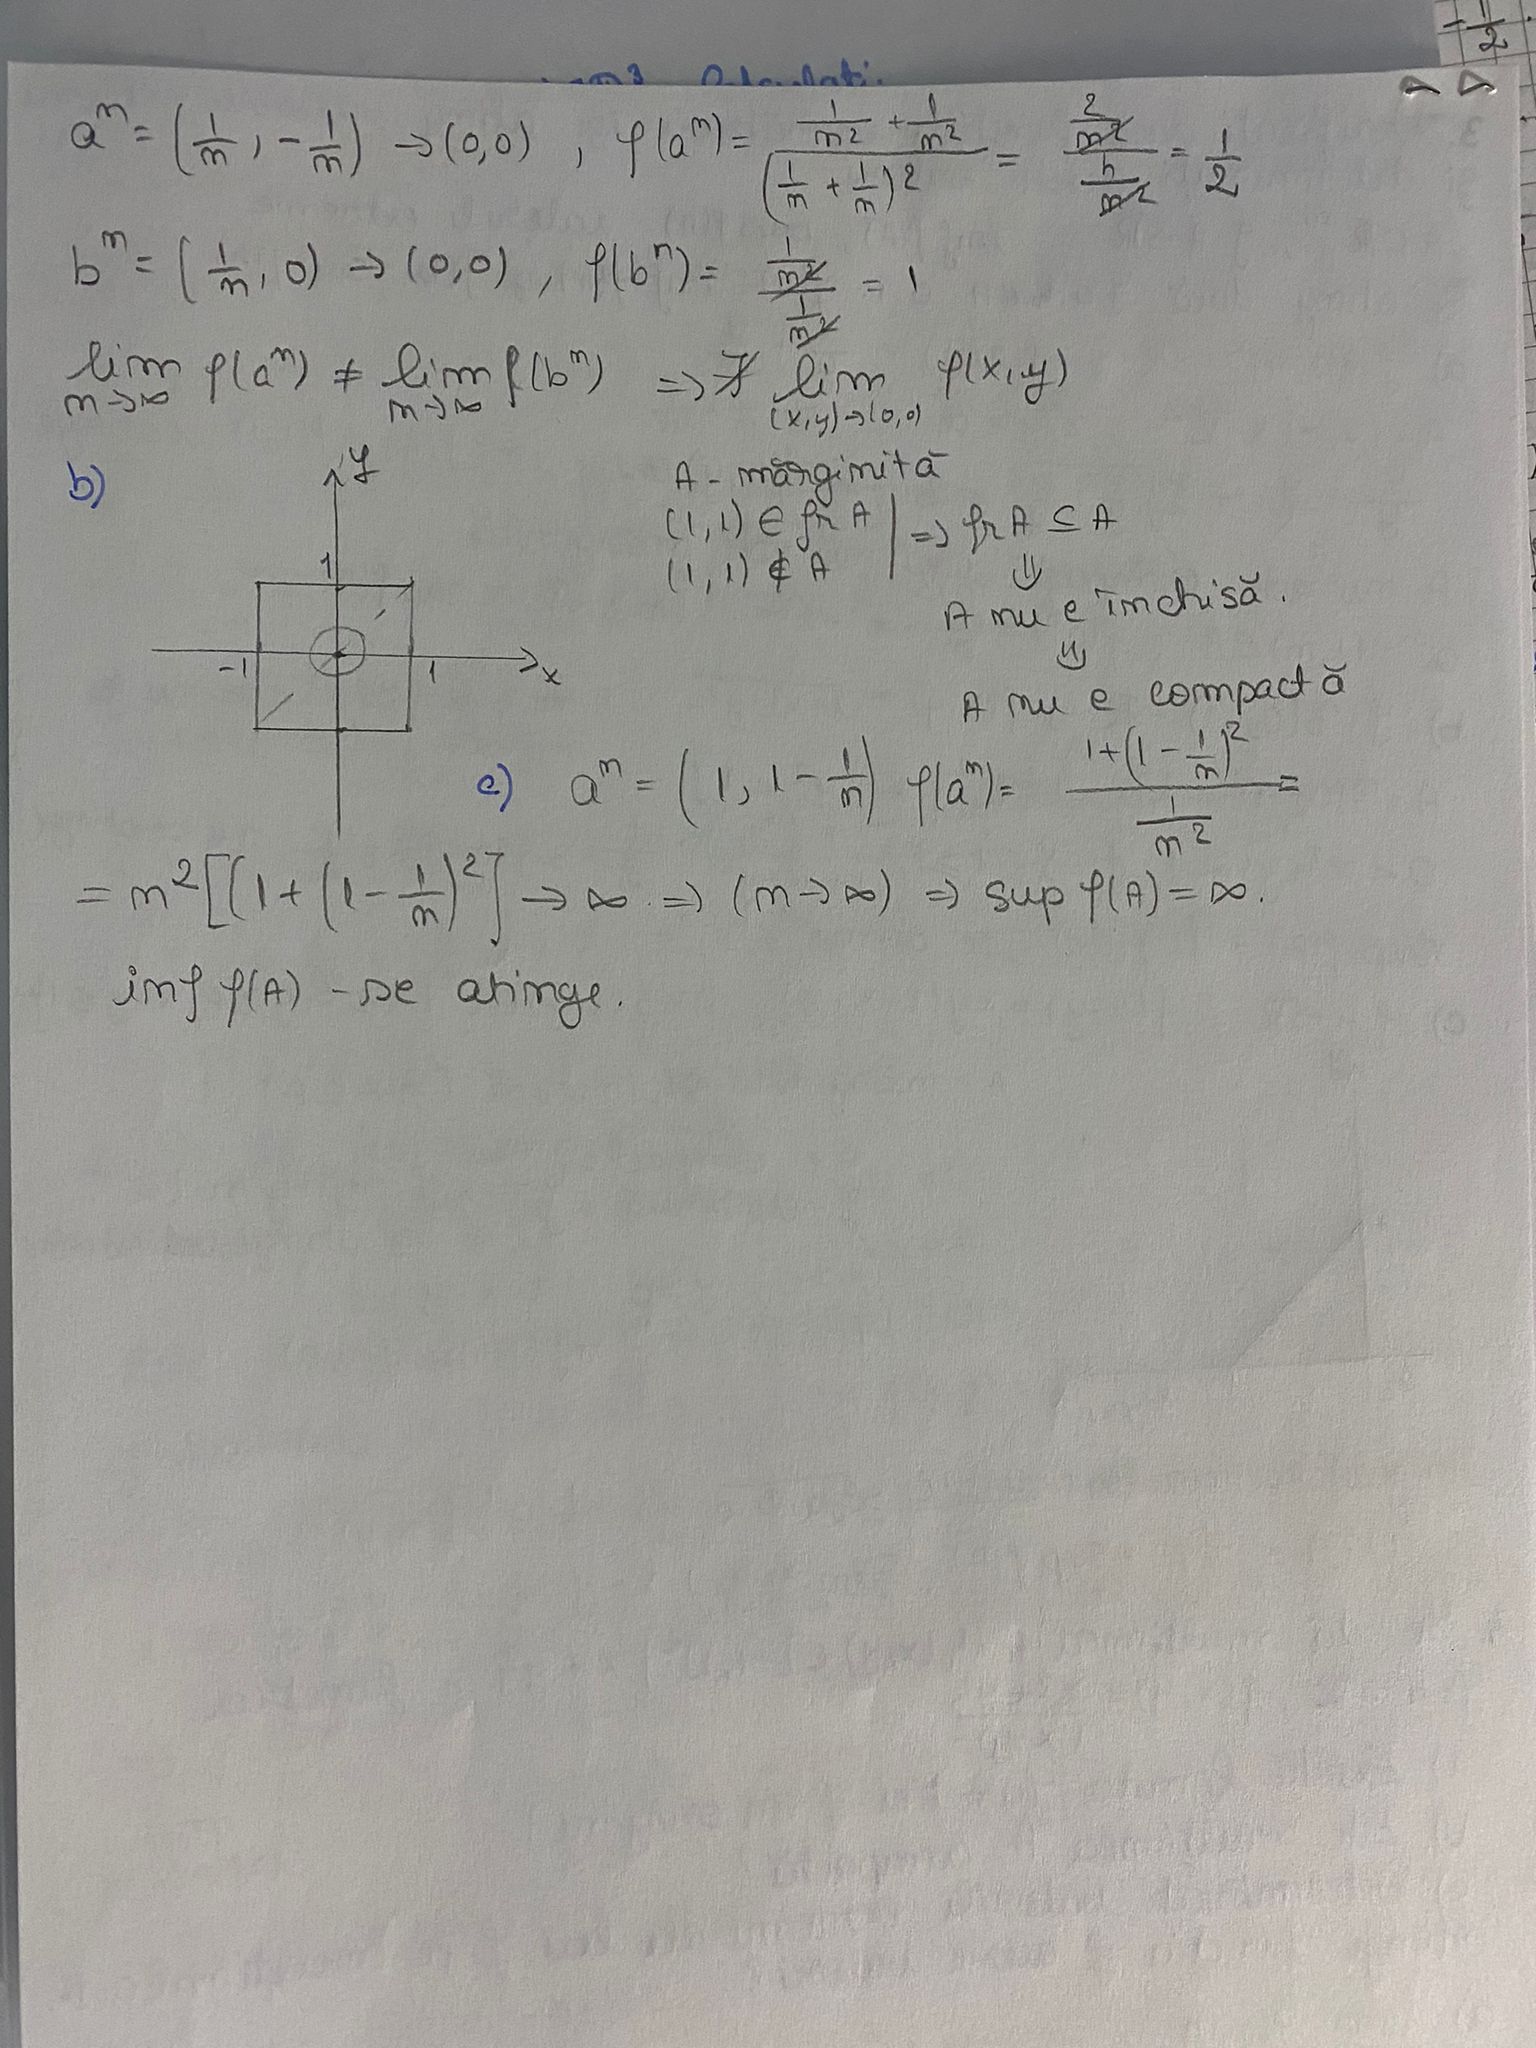 aⁿ = (1/n, -1/n) → (0,0), f(aⁿ) = (1/n² + 1/n²)/(1/n + 1/n)² = (2/n²)/(4/n²) = 1/2
bⁿ = (1/n, 0) → (0,0), f(bⁿ) = (1/n²)/(1/n²) = 1
lim n→∞ f(aⁿ) ≠ lim n→∞ f(bⁿ) => ∄ lim (x,y)→(0,0) f(x,y)
b)
y
1
-1
1
x
A - mărginită
(1,1) ∈ fr A
(1,1) ∉ A
=> fr A ⊆ A
⇓
A nu e închisă.
⇓
A nu e compactă
c) aⁿ = (1, 1 - 1/n) f(aⁿ) = (1 + (1 - 1/n)²)/(1/n²) =
= n²[(1 + (1 - 1/n)²] → ∞ => (n→∞) => sup f(A) = ∞.
inf f(A) - se atinge.
-1/2